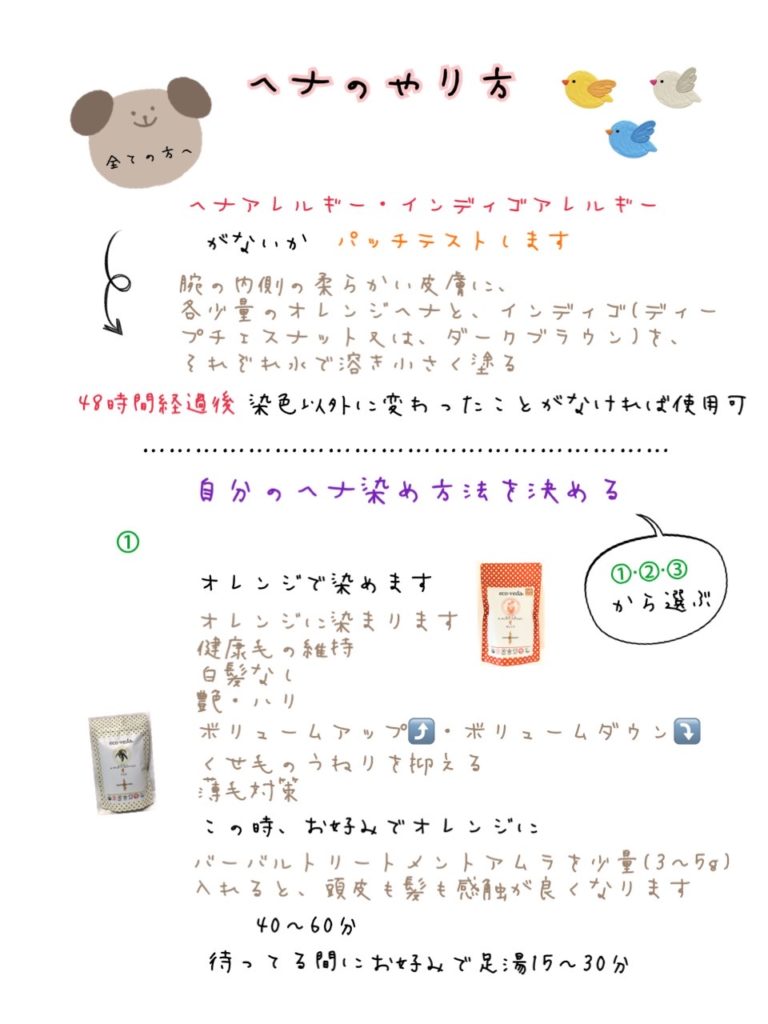 ヘナのやり方
全ての方へ
ヘナアレルギー・インディゴアレルギー
がないか パッチテストします
腕の内側の柔らかい皮膚に、
各少量のオレンジヘナと、インディゴ(ディー
プチェスナット又は、ダークブラウン)を、
それぞれ水で溶き小さく塗る
48時間経過後 染色以外に変わったことがなければ使用可
自分のヘナ染め方法を決める
①
①・②・③
から選ぶ
オレンジで染めます
eco-veda
オレンジに染まります
健康毛の維持
白髪なし
艶・ハリ
ボリュームアップ⤴️・ボリュームダウン⤵️
eco-veda
くせ毛のうねりを抑える
薄毛対策
この時、お好みでオレンジに
バーバルトリートメントアムラを少量(3〜5g)
入れると、頭皮も髪も感触が良くなります
40〜60分
待ってる間にお好みで足湯15〜30分